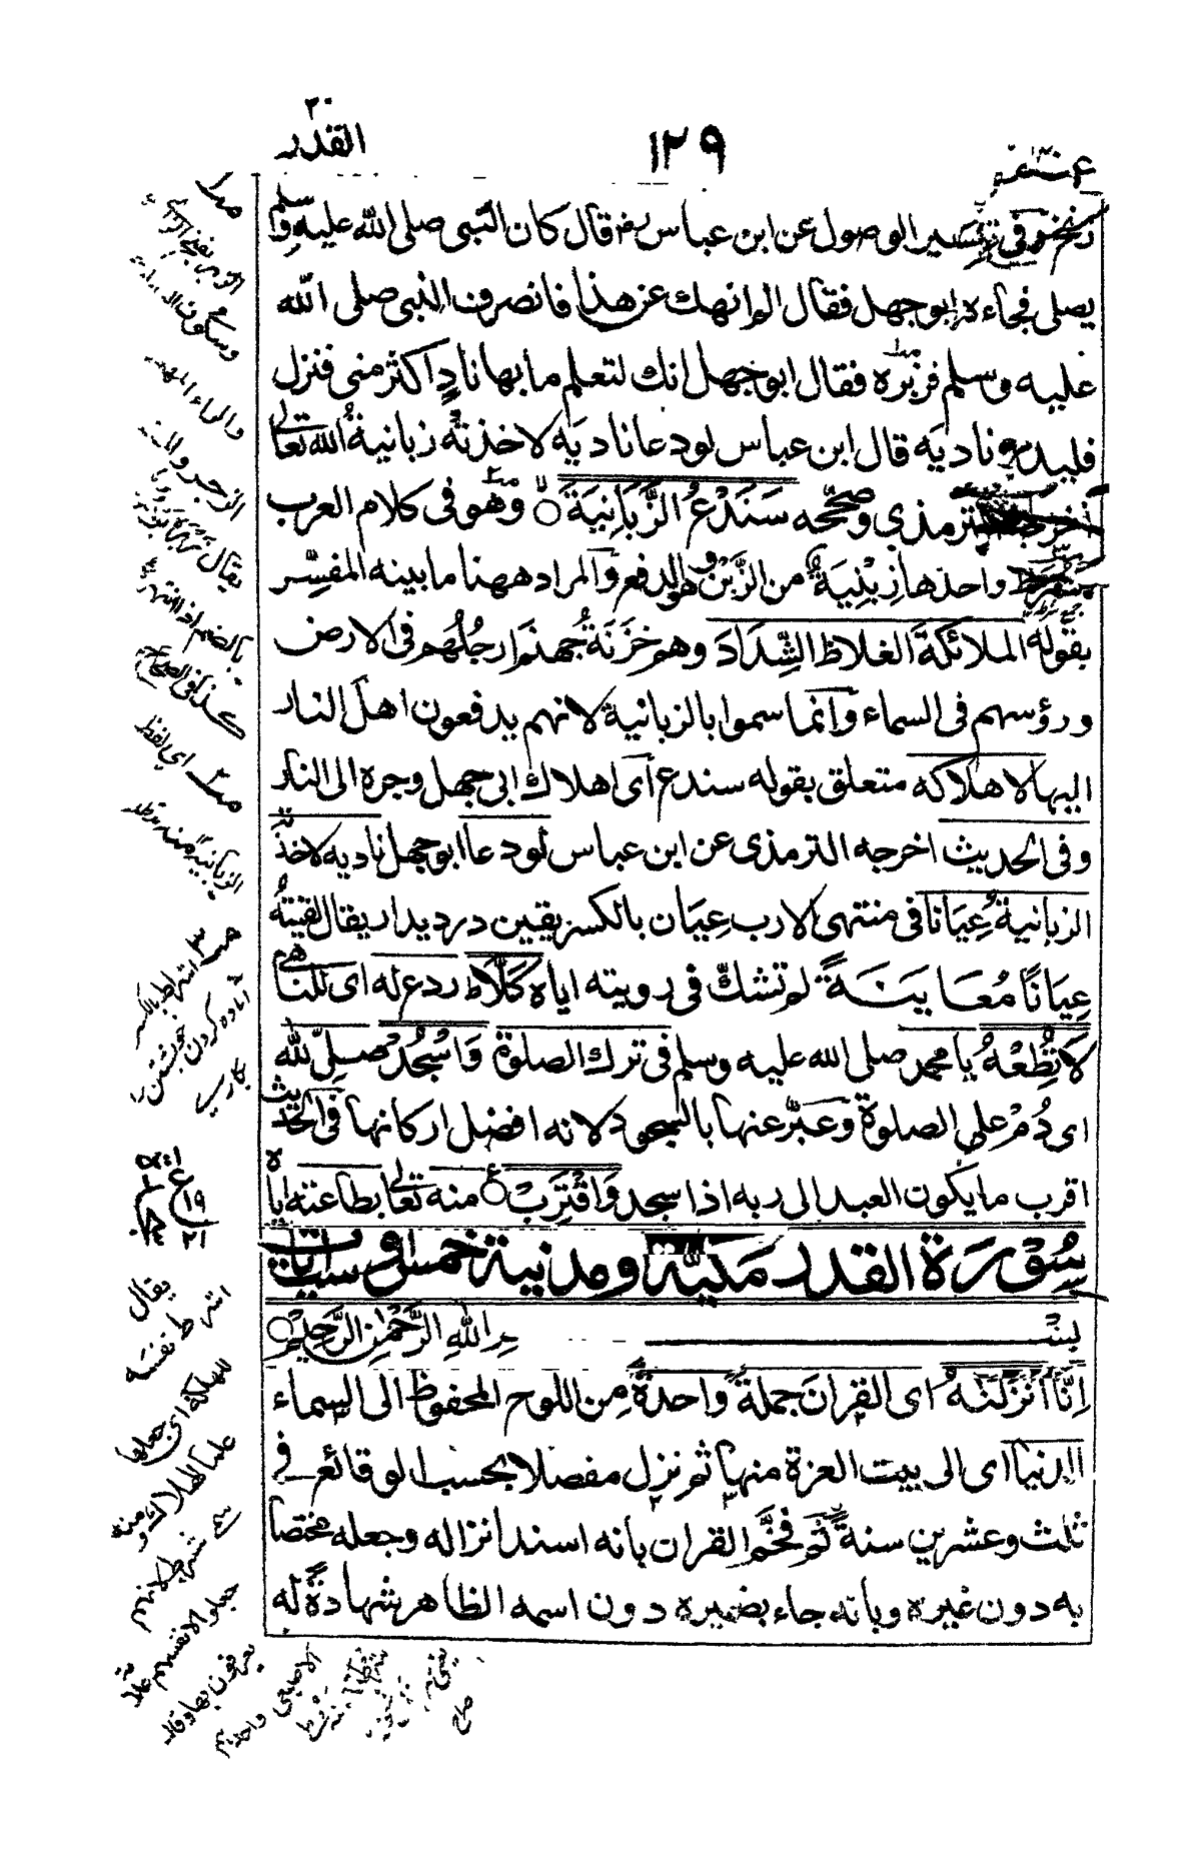 القدر
٣٠
١٢٩
عـــم ٣٠
فى تيسير الوصول عن ابن عباس رض قال كان النبى صلى الله عليه وسلم
يصلى فجاءه ابو جهل فقال الم انهك عن هذا فانصرف النبى صلى الله
عليه وسلم فزبره فقال ابو جهل انك لتعلم ما بها نادٍ اكثر منى فنزل
فليدع ناديَه قال ابن عباس لو دعا ناديَه لاخذتْه زبانيةُ الله تعالى
اخرجه الترمذى وصحّحه سَنَدْعُ الزَّبَانِيَةَ ○ وهو فى كلام العرب
الشرط واحدها زِبْنِيَةٌ من الزَّبْنِ وهو الدفع والمراد ههنا ما بينه المفسِّر
بقوله الملائكةَ الغلاظَ الشِّدَادَ وهم خَزَنَةُ جهنم ارجُلُهم فى الارض
ورؤسهم فى السماء وانما سموا بالزبانية لانهم يدفعون اهل النار
اليها لاهلاكه متعلق بقوله سندع اى اهلاك ابى جهل وجره الى النار
وفى الحديث اخرجه الترمذى عن ابن عباس لو دعا ابو جهل ناديه لاخذته
الزبانيةُ عِيَانًا فى منتهى الارب عِيَان بالكسر يقين در ديدار يقال لقيتُهُ
عِيَانًا مُعَايَنَةً لم تشكّ فى رويته اياه كَلَّا ط ردع له اى للناهى
لَا تُطِعْهُ يا محمد صلى الله عليه وسلم فى ترك الصلوة وَاسْجُدْ صلِّ لله
اى دُمْ على الصلوة وعَبَّرَ عنها بالسجود لانه افضل اركانها فى الحديث
اقرب ما يكون العبد الى ربه اذا سجد وَاقْتَرِبْ ○ منه تعالى بطاعته اياه
سُوْرَة القدر مكيّة او مدنية خمس او ست ايات
بِسْــــمِ اللهِ الرَّحْمٰنِ الرَّحِيْمِ ○
اِنَّا اَنْزَلْنٰهُ اى القرانَ جملةً واحدةً مِن اللوح المحفوظ الى السماء
الدنيا اى الى بيت العزة منها ثم نزل مفصلا بحسب الوقائع فى
ثلث وعشرين سنة ثم فخَّم القران بانه اسند انزاله وجعله مختصا
به دون غيره وبانه جاء بضميره دون اسمه الظاهر شهادةً له
والراء المهملة
بالضم اذا انتهره
كذا فى الصراح
اى لفظ
الزبانية منه
اشراط بالكسر
اماده كردن خويشتن
بكارى
يقال
اشرط نفسَه
للهلكة اى جعلها
علمًا للهلاك ومنه
شرط لانهم
جعلوا لانفسهم علامة
يعرفون بها وقال
الاصمعى